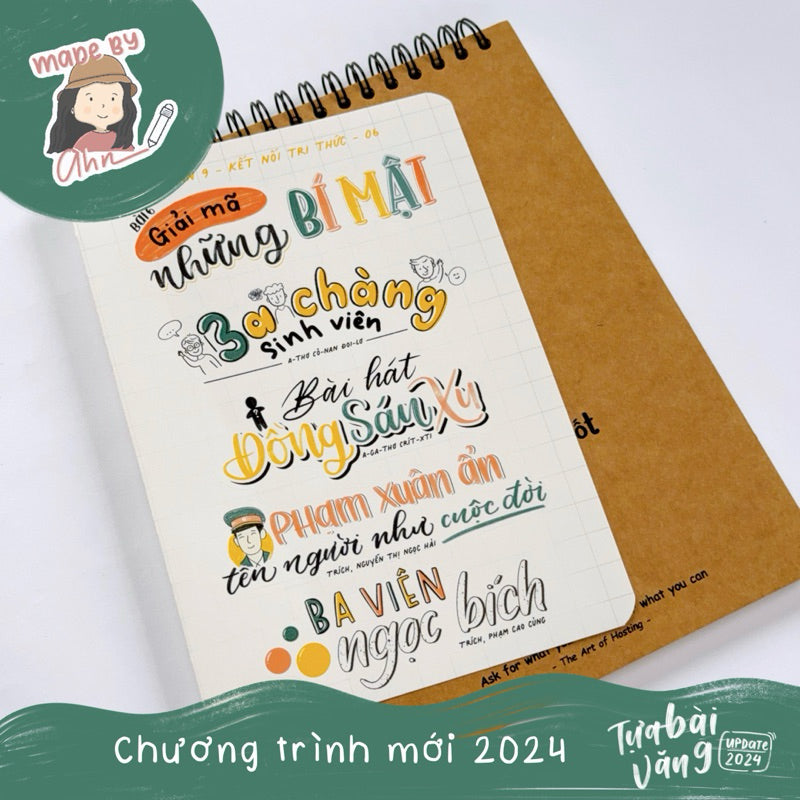 MADE BY
ahn
9 - KẾT NỐI TRI THỨC - 06
BÀI 6
Giải mã
những BÍ MẬT
3a chàng
sinh viên
A-THƠ CÔ-NAN ĐOI-LƠ
Bài hát
Đồng Sáu Xu
A-GA-THƠ CRÍT-XTI
PHẠM XUÂN ẨN
tên người như cuộc đời
TRÍCH, NGUYỄN THỊ NGỌC HẢI
BA VIÊN
ngọc bích
TRÍCH, PHẠM CAO CỦNG
ốt
what you can
Ask for what you
- The Art of Hosting -
Chương trình mới 2024
Tựa bài
văn 9
UPDATE
2024